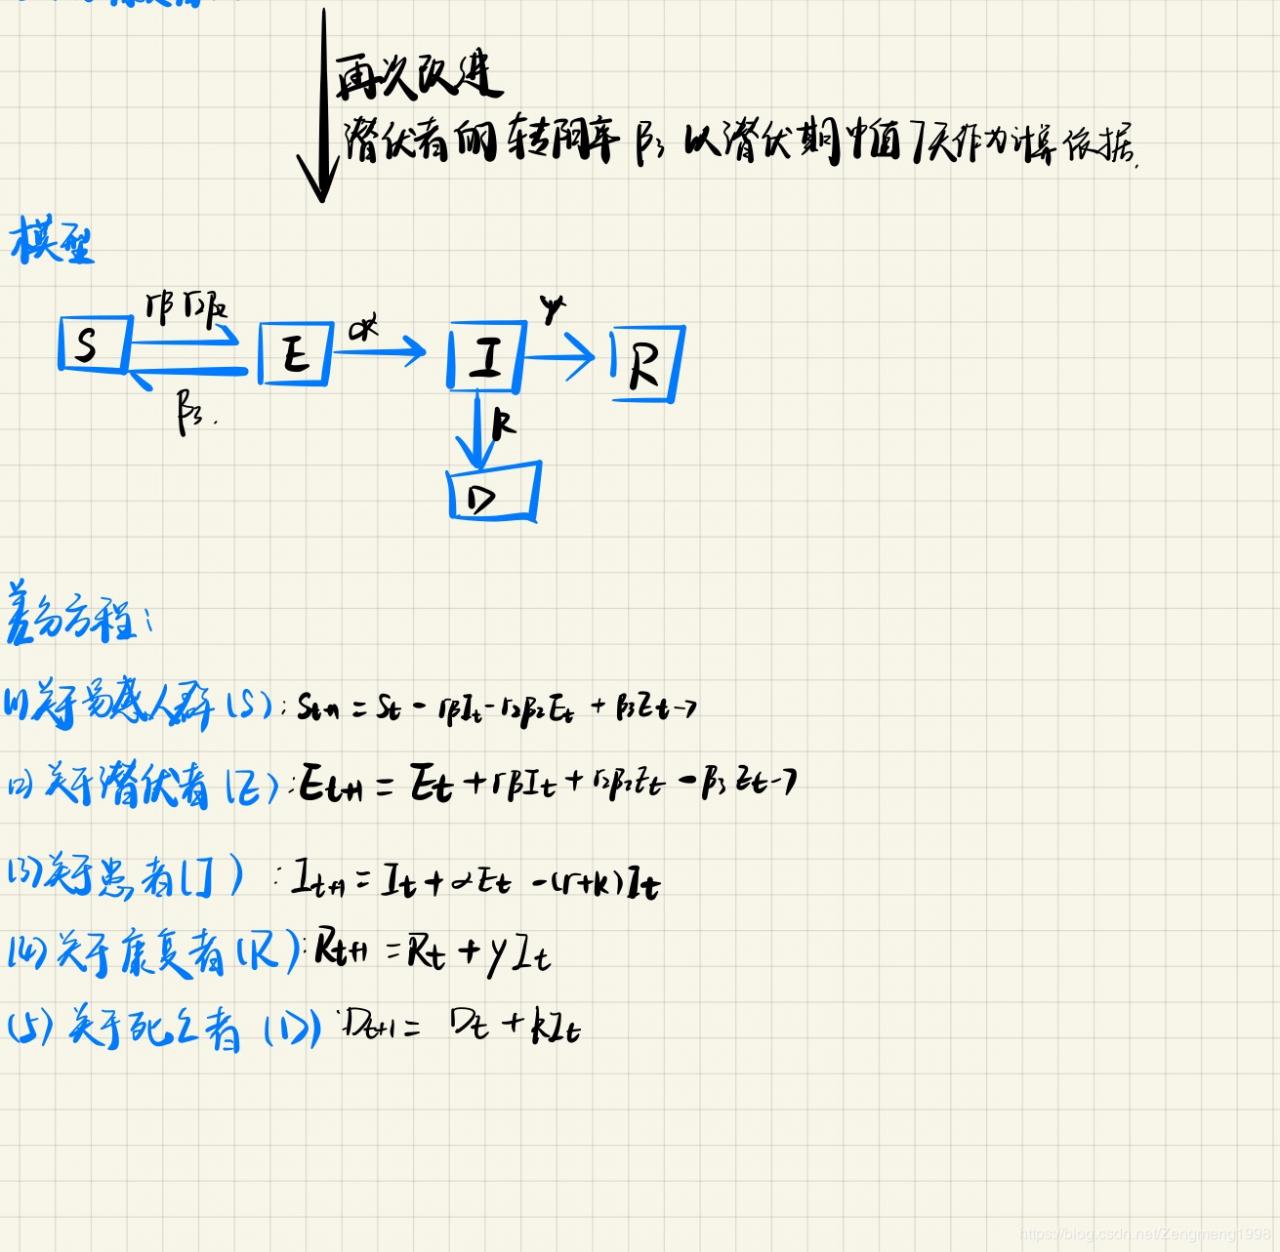 再次改进
潜伏者的转阴率 β₃ 以潜伏期中值7天作为计算依据.
模型
rβ r₂β₂
S
E
α
I
γ
R
β₃.
k
D
差分方程:
(1)关于易感人群(S): St+1 = St - rβIt - r₂β₂Et + β₃Et-7
(2)关于潜伏者(E): Et+1 = Et + rβIt + r₂β₂Et - β₃Et-7
(3)关于患者(I): It+1 = It + αEt - (r+k)It
(4)关于康复者(R): Rt+1 = Rt + γIt
(5)关于死亡者(D): Dt+1 = Dt + kIt
https://blog.csdn.net/Zengmeng1998